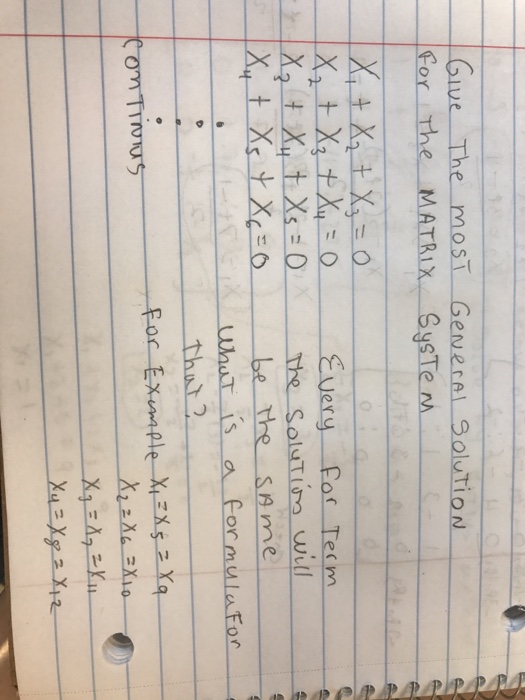 Give The most General Solution
For The MATRIX System
X₁ + X₂ + X₃ = 0
X₂ + X₃ + X₄ = 0
X₃ + X₄ + X₅ = 0
X₄ + X₅ + X₆ = 0
Continus
Every For Term
The Solution will
be the same
What is a formula For
that?
For Example X₁ = X₅ = X₉
X₂ = X₆ = X₁₀
X₃ = X₇ = X₁₁
X₄ = X₈ = X₁₂